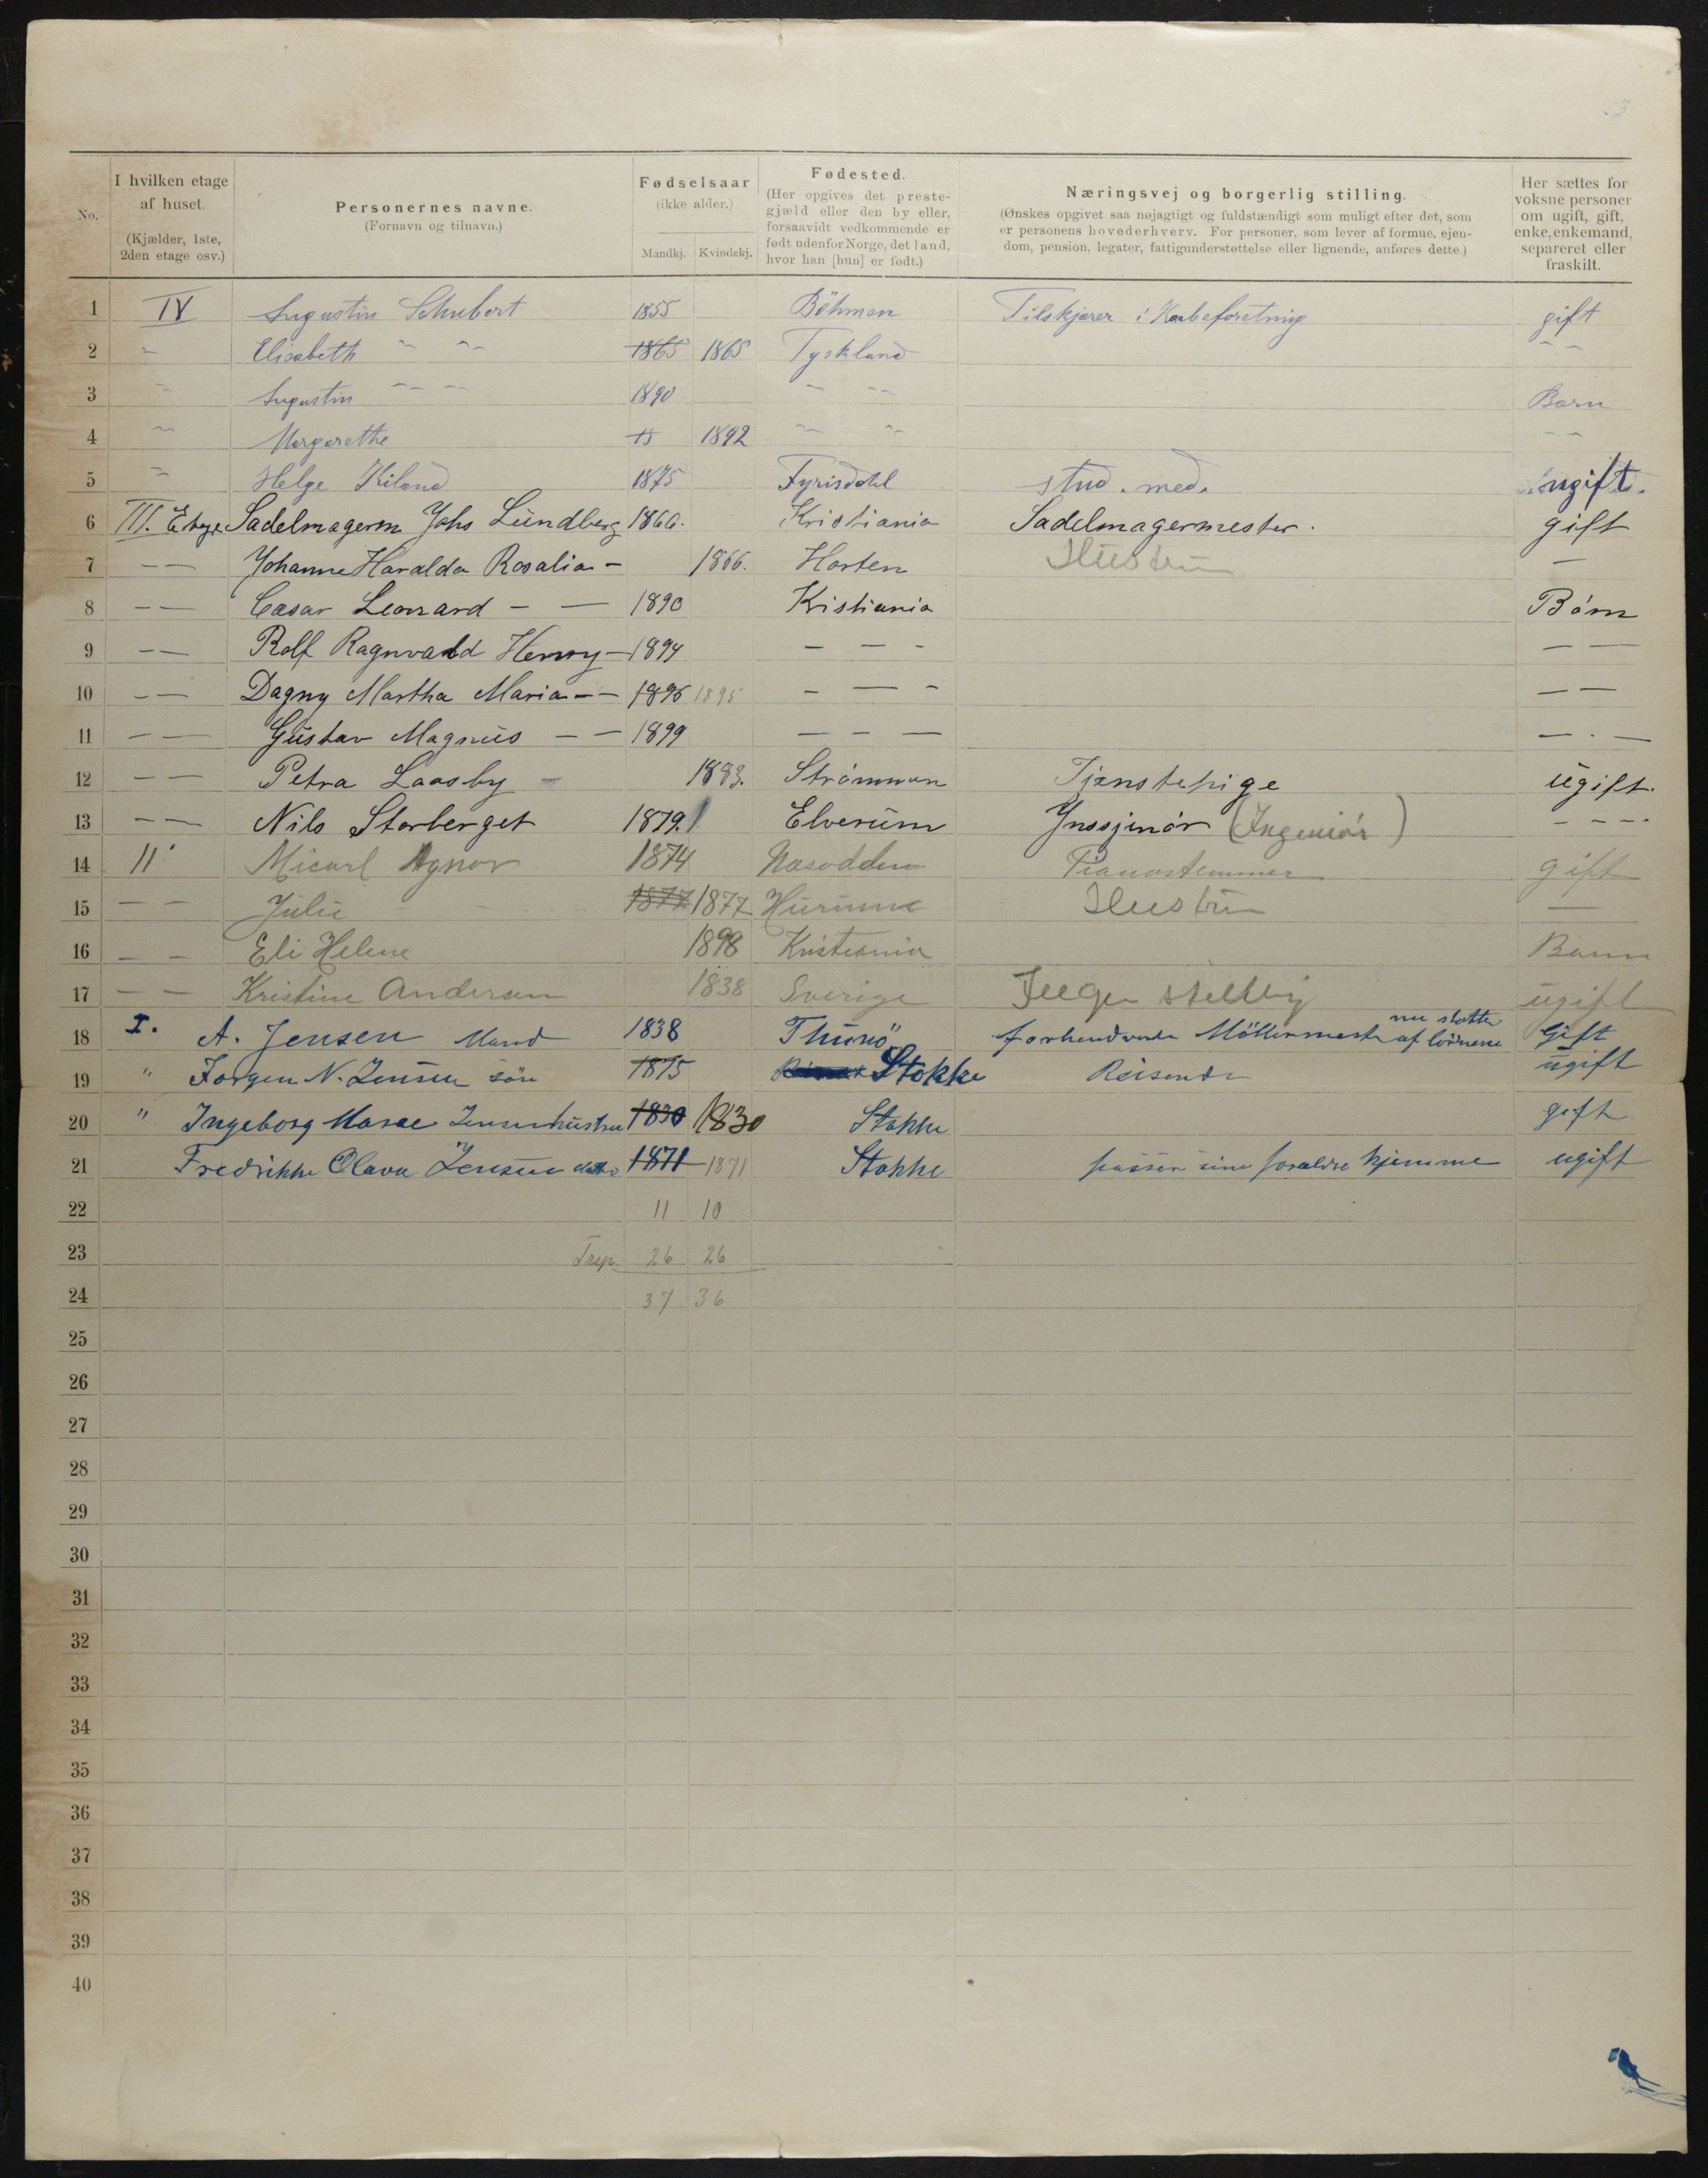 No.
I hvilken etage af huset. (Kjælder, 1ste, 2den etage osv.)
Personernes navne. (Fornavn og tilnavn.)
Fødselsaar (ikke alder.) Mandkj. Kvindekj.
Fødested. (Her opgives det prestegjæld eller den by eller, forsaavidt vedkommende er født udenfor Norge, det land, hvor han [hun] er født.)
Næringsvej og borgerlig stilling. (Ønskes opgivet saa nøjagtigt og fuldstændigt som muligt efter det, som er personens hovederhverv. For personer, som lever af formue, ejendom, pension, legater, fattigunderstøttelse eller lignende, anføres dette.)
Her sættes for voksne personer om ugift, gift, enke, enkemand, separeret eller fraskilt.
1 IV Augustin Schubert 1855 Böhmen Tilskjærer i Kaabeforetning gift
2 " Elisabeth " " 1865 1865 Tyskland " "
3 " Augustin " " 1890 " " Barn
4 " Margarethe 18 1892 " " " "
5 " Helge Kiland 1875 Fyrisdal stud. med. ugift.
6 III. Etage Sadelmagerm Johs Lundberg 1866. Kristiania Sadelmagermester. gift
7 — — Johanne Haralda Rosalia - 1866. Horten Hustru —
8 — — Cæsar Leonard — — 1890 Kristiania Börn
9 — — Rolf Ragnvald Henry — 1894 — — - — —
10 — — Dagny Martha Maria — — 1895 1895 - — - — —
11 — — Gustav Magnus — — 1899 — — — — . —
12 — — Petra Laasby — 1883. Strömmen Tjenstepige ugift.
13 — — Nils Storberget 1879. Elverum Jnssjinör (Ingeniör) - - -
14 II Micael Agnor 1874 Næsodden Pianostemmer gift
15 — — Julie - 1877 1877 Hurum Hustru —
16 — — Eli Helene 1898 Kristiania Barn
17 — — Kristine Andersen 1838 Sverige ugift
18 I. A. Jensen Mand 1838 Thurö forhenværende Möllermester nu støttes af börnene Gift
19 " Jørgen N. Jensen sön 1875 Stokke Reisende ugift
20 " Ingeborg Marie Jensen hustru 1830 1830 Stokke gift
21 Fredrikke Olava Jensen datter 1871 1871 Stokke passer sine forældre hjemme ugift
22 11 10
23 Trsp. 26 26
24 37 36
25
26
27
28
29
30
31
32
33
34
35
36
37
38
39
40